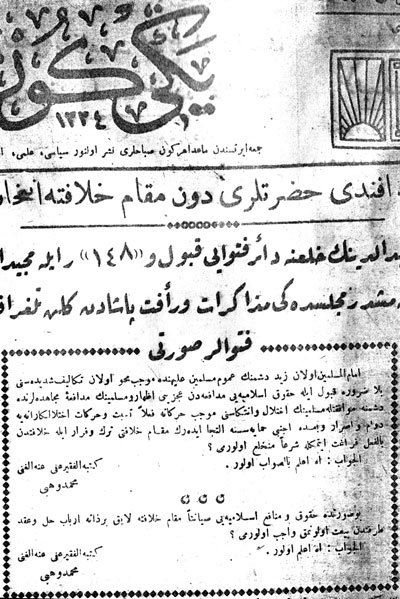 یکی کون
١٣٣٤
جمعه ایرتسندن ماعدا هرکون صباحلری نشر اولنور سیاسی، علمی،
افندی حضرتلری دون مقام خلافته انتخاب
الدینك خلعنه دائر فتوایی قبول و «١٤٨» رأیله مجید
مجلسده کی مذاکرات ورأفت پاشادن کلن تلغراف
فتوالر صورتی
امام المسلمین اولان زید دشمنك عموم مسلمین علیهنده موجب محو اولان تکالیف شدیده سنی
بلا ضروره قبول ایله حقوق اسلامیه یی مدافعه دن عجزینی اظهار و مسلمینك مدافعهٔ مجاهده لرنده
دشمنه موافقتله مسلمینك اختلال وانکساری موجب حرکاته فعلاً و حرکات اختلالکارانه یه
دوام و اصرار و بعده اجنبی حمایه سنه التجا ایده رك مقام خلافتی ترك و فرار ایله خلافتدن
بالفعل فراغت ایتمکله شرعاً منخلع اولورمی ؟
الجواب : الله اعلم بالصواب اولور .
کتبه الفقیر عفی عنه الغنی
محمد وهبی
بو صورتده حقوق و منافع اسلامیه یی صیانةً مقام خلافته لایق بر ذاته ارباب حل وعقد
طرفندن بیعت اولونمق واجب اولورمی ؟
الجواب : الله اعلم اولور .
کتبه الفقیر عفی عنه الغنی
محمد وهبی